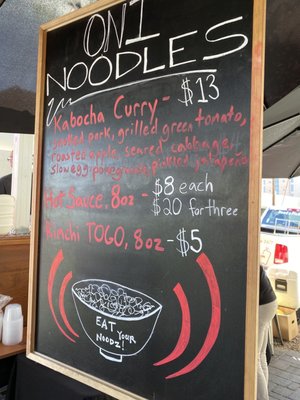 ONI
NOODLES
Kabocha Curry - $13
smoked pork, grilled green tomato,
roasted apple, seared cabbage,
slow egg, pomegranate, pickled jalapeño
Hot Sauce, 8oz - $8 each
$20 for three
Kimchi TOGO, 8oz - $5
EAT YOUR
NOODZ!